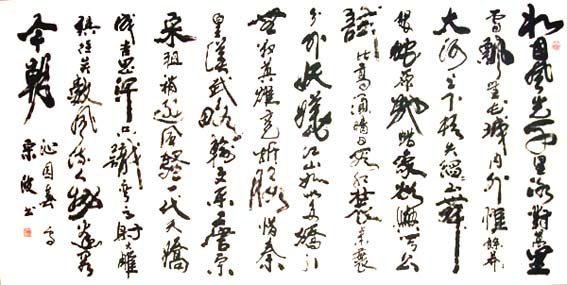 北国風光千里冰封萬里
雪飘望长城内外惟餘莽莽
大河上下顿失滔滔山舞
银蛇原驰蜡象欲與天公
試比高须晴日看红装素裹
分外妖娆江山如此多嬌引
無数英雄竞折腰惜秦
皇漢武略输文采唐宗
宋祖稍逊風騷一代天骄
成吉思汗只識弯弓射大雕
俱往矣数風流人物还看
今朝
沁园春雪